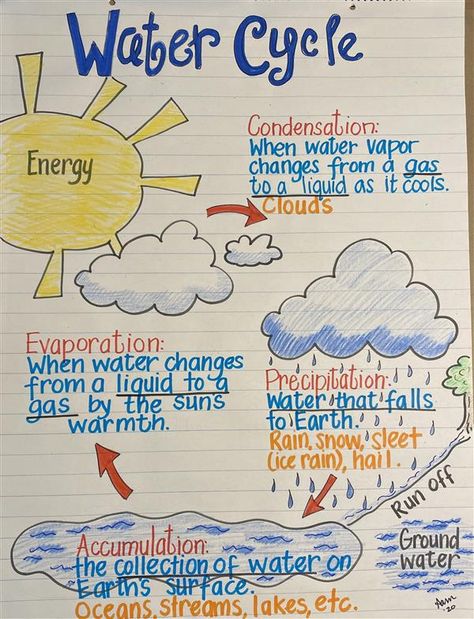 Water Cycle
Energy
Condensation:
When water vapor
changes from a gas
to a liquid as it cools.
Clouds
Evaporation:
When water changes
from a liquid to a
gas by the suns
warmth.
Precipitation:
Water that falls
to Earth.
Rain, snow, sleet
(ice rain), hail.
Run off
Ground
water
Accumulation:
the collection of water on
Earth's surface.
Oceans, streams, lakes, etc.
'20